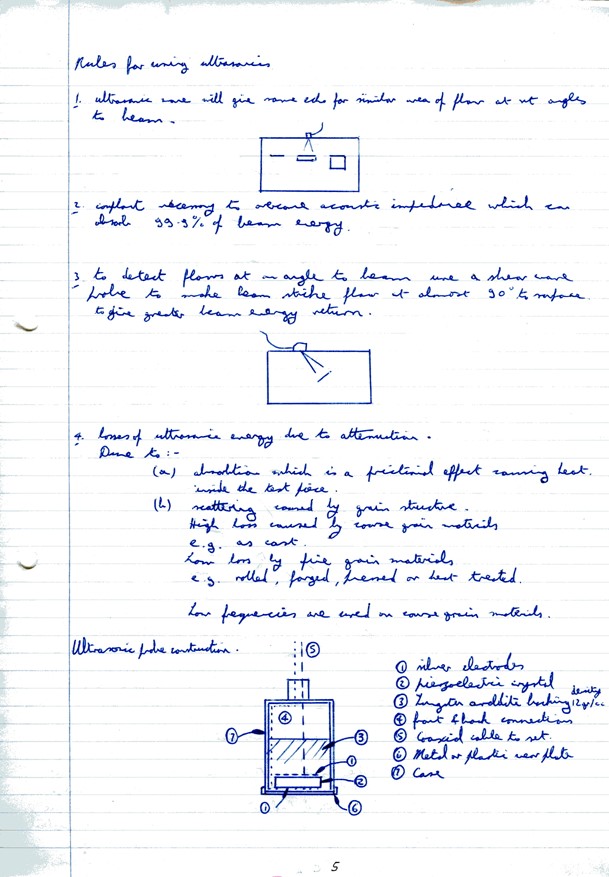 Rules for using ultrasonics
1. ultrasonic wave will give same echo for similar area of flaw at rt angles
to beam.
2. couplant necessary to overcome acoustic impedance which can
absorb 99.9% of beam energy.
3. to detect flaws at an angle to beam use a shear wave
probe to make beam strike flaw at almost 90° to surface
to give greater beam energy return.
4. losses of ultrasonic energy due to attenuation.
Due to :-
(a) absorbtion which is a frictional effect causing heat
inside the test piece.
(b) scattering caused by grain structure.
High loss caused by course grain materials
e.g. as cast.
Low loss by fine grain materials
e.g. rolled, forged, pressed or heat treated.
Low frequencies are used on course grain materials.
Ultrasonic probe construction.
5
4
7
3
1
2
1
6
1 silver electrodes
2 piezoelectric crystal
3 Tungsten araldite backing density 12gr/cc
4 front & back connections
5 Coaxial cable to set.
6 Metal or plastic wear plate
7 Case
5